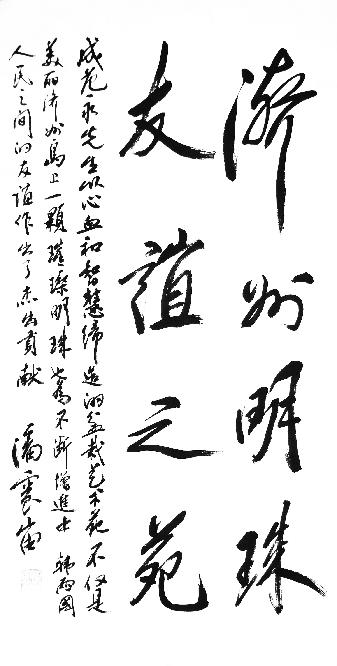 濟州明珠
友誼之苑
成范永先生以心血和智慧缔造的盆栽艺术苑不仅是
美丽济州島上一顆璀璨明珠也為不断增進中韩两国
人民之间的友谊作出了杰出貢献 潘震宙